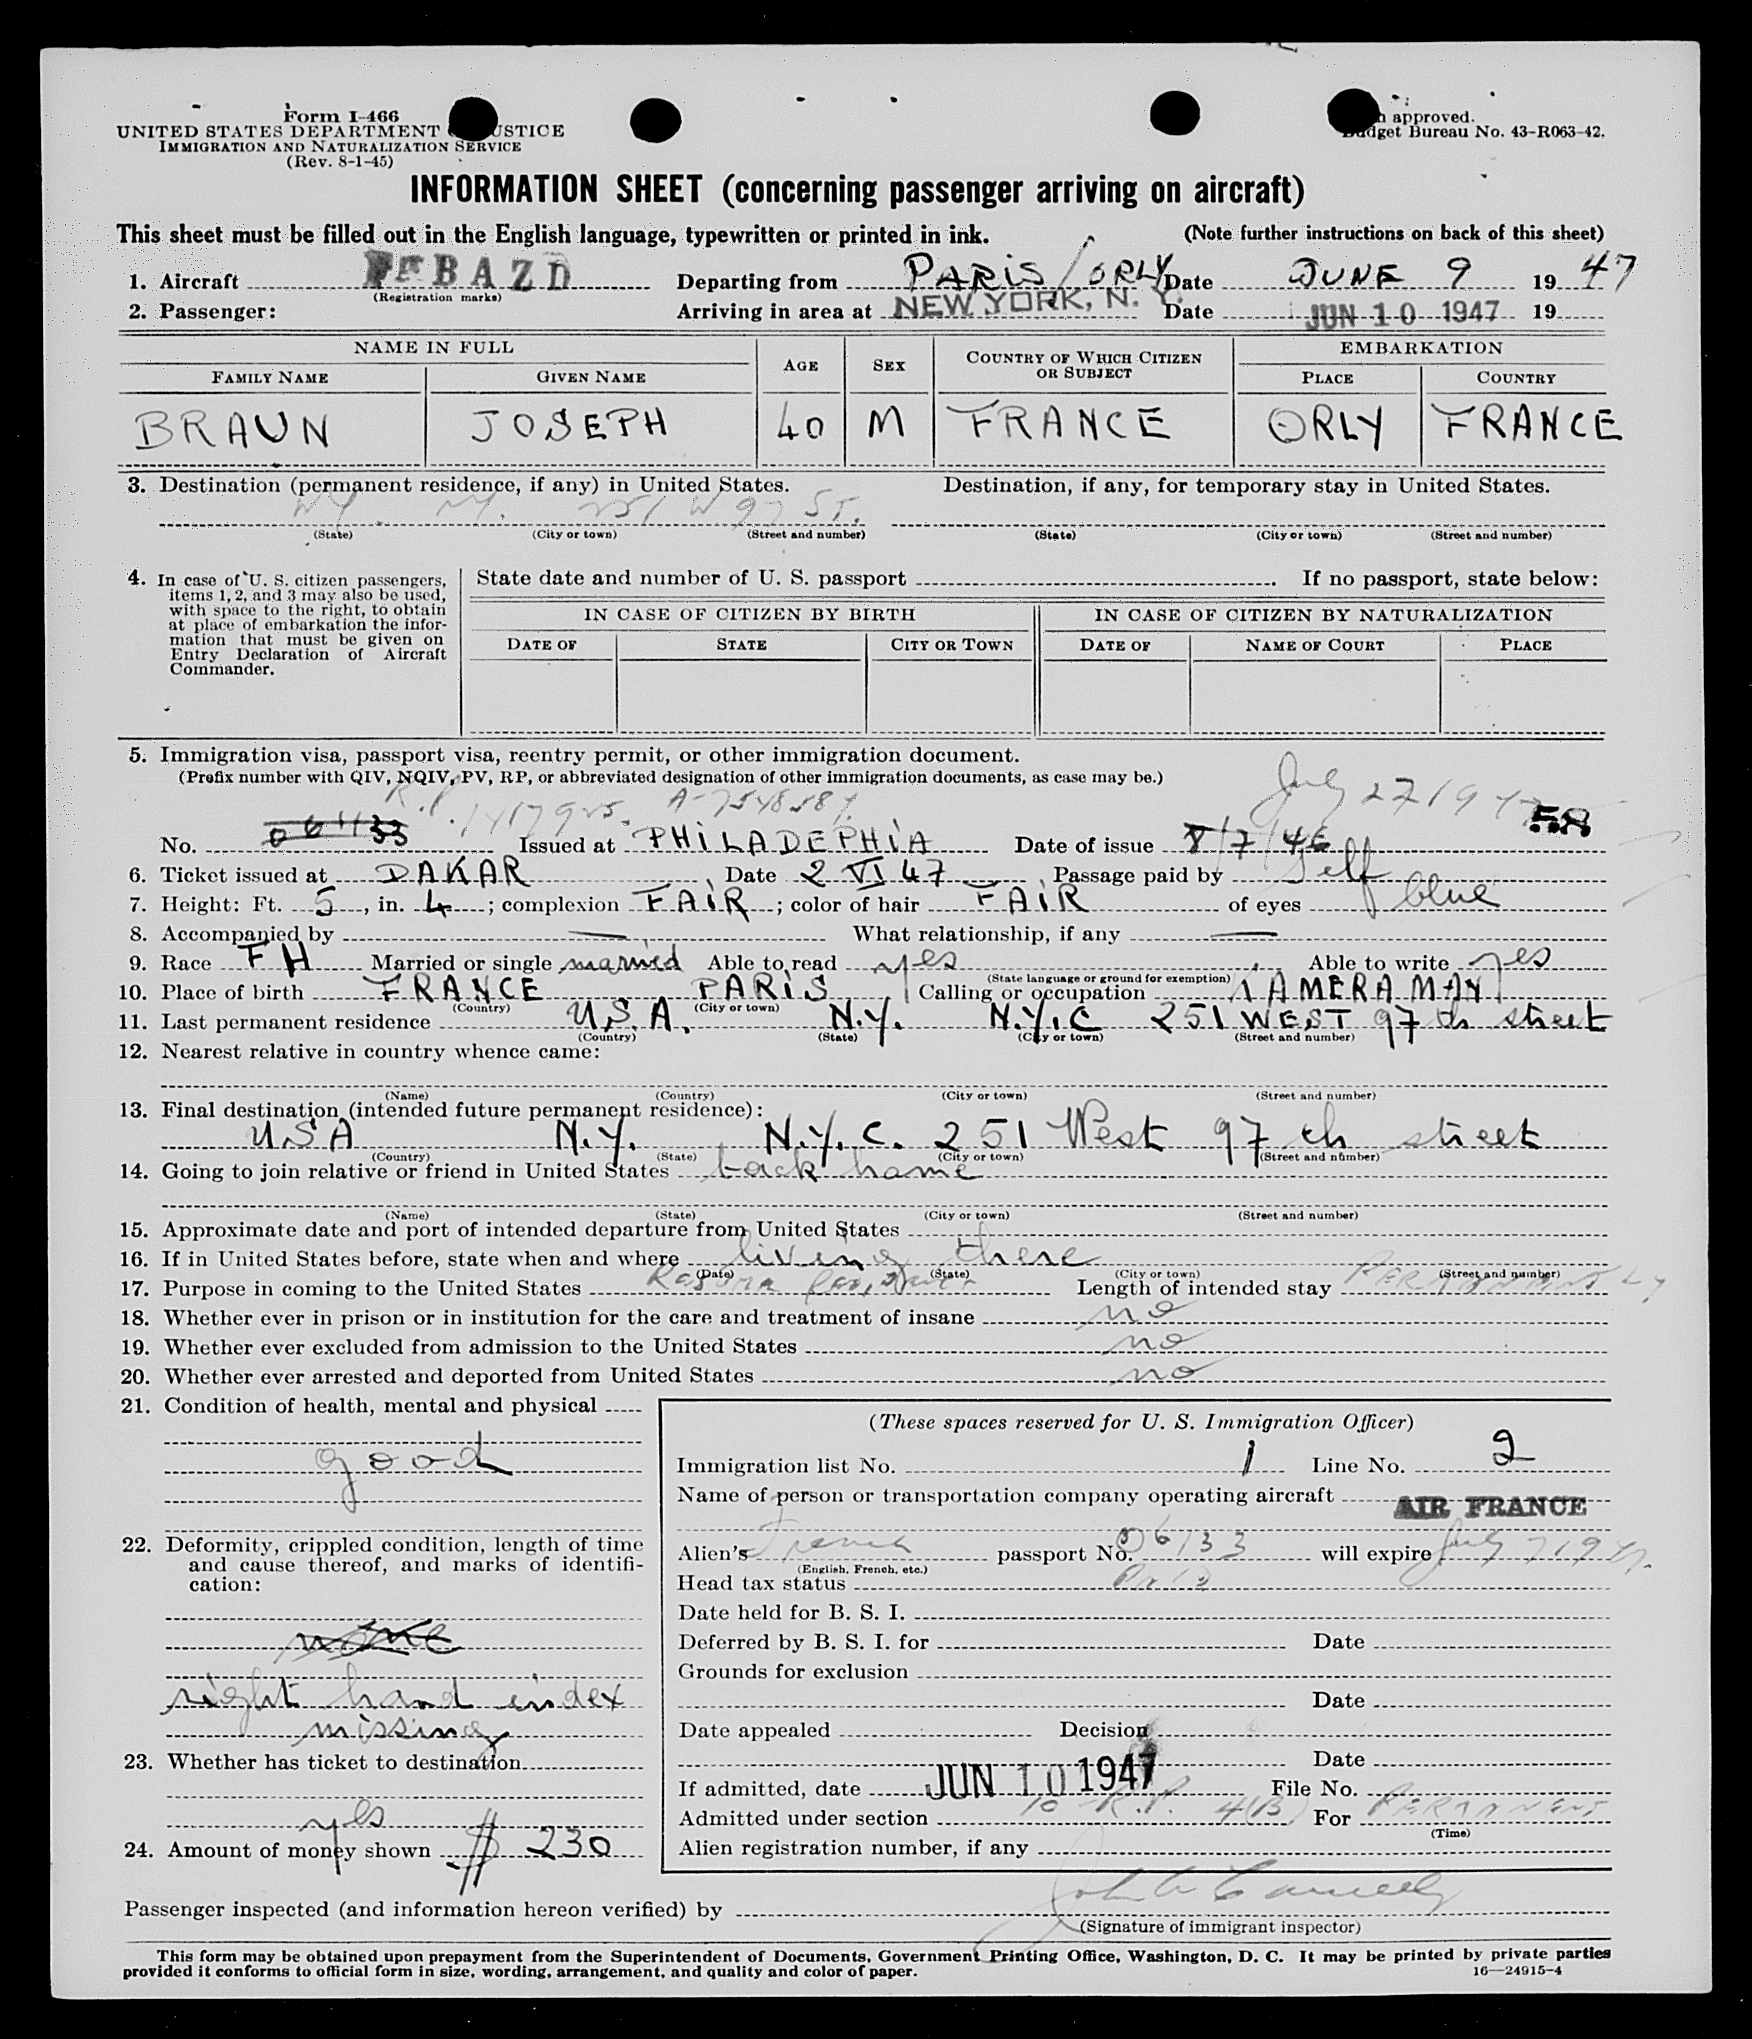 Form I-466
UNITED STATES DEPARTMENT JUSTICE
IMMIGRATION AND NATURALIZATION SERVICE
(Rev. 8-1-45)
approved.
Budget Bureau No. 43-R063-42.
INFORMATION SHEET (concerning passenger arriving on aircraft)
This sheet must be filled out in the English language, typewritten or printed in ink. (Note further instructions on back of this sheet)
1. Aircraft BAZD Departing from PARIS/ORLY Date JUNE 9 1947
(Registration marks)
2. Passenger: Arriving in area at NEW YORK, N. Y. Date JUN 10 1947 19
NAME IN FULL AGE SEX COUNTRY OF WHICH CITIZEN OR SUBJECT EMBARKATION
FAMILY NAME GIVEN NAME PLACE COUNTRY
BRAUN JOSEPH 40 M FRANCE ORLY FRANCE
3. Destination (permanent residence, if any) in United States. Destination, if any, for temporary stay in United States.
NY. NY. 251 W 97 ST.
(State) (City or town) (Street and number) (State) (City or town) (Street and number)
4. In case of U. S. citizen passengers, items 1, 2, and 3 may also be used, with space to the right, to obtain at place of embarkation the information that must be given on Entry Declaration of Aircraft Commander.
State date and number of U. S. passport . If no passport, state below:
IN CASE OF CITIZEN BY BIRTH IN CASE OF CITIZEN BY NATURALIZATION
DATE OF STATE CITY OR TOWN DATE OF NAME OF COURT PLACE
5. Immigration visa, passport visa, reentry permit, or other immigration document.
(Prefix number with QIV, NQIV, PV, RP, or abbreviated designation of other immigration documents, as case may be.)
R.P. 1417925. A-7548584. July 27 1947 58
No. 06133 Issued at PHILADEPHIA Date of issue 8/7/46
6. Ticket issued at DAKAR, Date 2 VI 47, Passage paid by Self
7. Height: Ft. 5, in. 4; complexion FAIR; color of hair FAIR of eyes blue
8. Accompanied by — What relationship, if any —
9. Race FH Married or single married Able to read yes, Able to write yes
(State language or ground for exemption)
10. Place of birth FRANCE PARIS Calling or occupation CAMERA MAN
(Country) (City or town)
11. Last permanent residence U.S.A. N.Y. N.Y.C 251 WEST 97 th street
(Country) (State) (City or town) (Street and number)
12. Nearest relative in country whence came:
(Name) (Country) (City or town) (Street and number)
13. Final destination (intended future permanent residence):
USA N.Y. N.Y.C. 251 West 97 th street
(Country) (State) (City or town) (Street and number)
14. Going to join relative or friend in United States back home
(Name) (State) (City or town) (Street and number)
15. Approximate date and port of intended departure from United States
16. If in United States before, state when and where living there
(Date) (State) (City or town) (Street and number)
17. Purpose in coming to the United States Length of intended stay PERMANENTLY
18. Whether ever in prison or in institution for the care and treatment of insane no
19. Whether ever excluded from admission to the United States no
20. Whether ever arrested and deported from United States no
21. Condition of health, mental and physical
good
22. Deformity, crippled condition, length of time and cause thereof, and marks of identification:
none
right hand index
missing
23. Whether has ticket to destination
yes
24. Amount of money shown $ 230
(These spaces reserved for U. S. Immigration Officer)
Immigration list No. 1 Line No. 2
Name of person or transportation company operating aircraft AIR FRANCE
Alien's French passport No. 06133 will expire July 7 1947.
(English, French, etc.)
Head tax status Paid
Date held for B. S. I.
Deferred by B. S. I. for Date
Grounds for exclusion
Date
Date appealed Decision
Date
If admitted, date JUN 10 1947 File No.
Admitted under section 10 - R.P. 4(B) For PERMANENT
(Time)
Alien registration number, if any
Passenger inspected (and information hereon verified) by
(Signature of immigrant inspector)
This form may be obtained upon prepayment from the Superintendent of Documents, Government Printing Office, Washington, D. C. It may be printed by private parties
provided it conforms to official form in size, wording, arrangement, and quality and color of paper. 16—24915-4